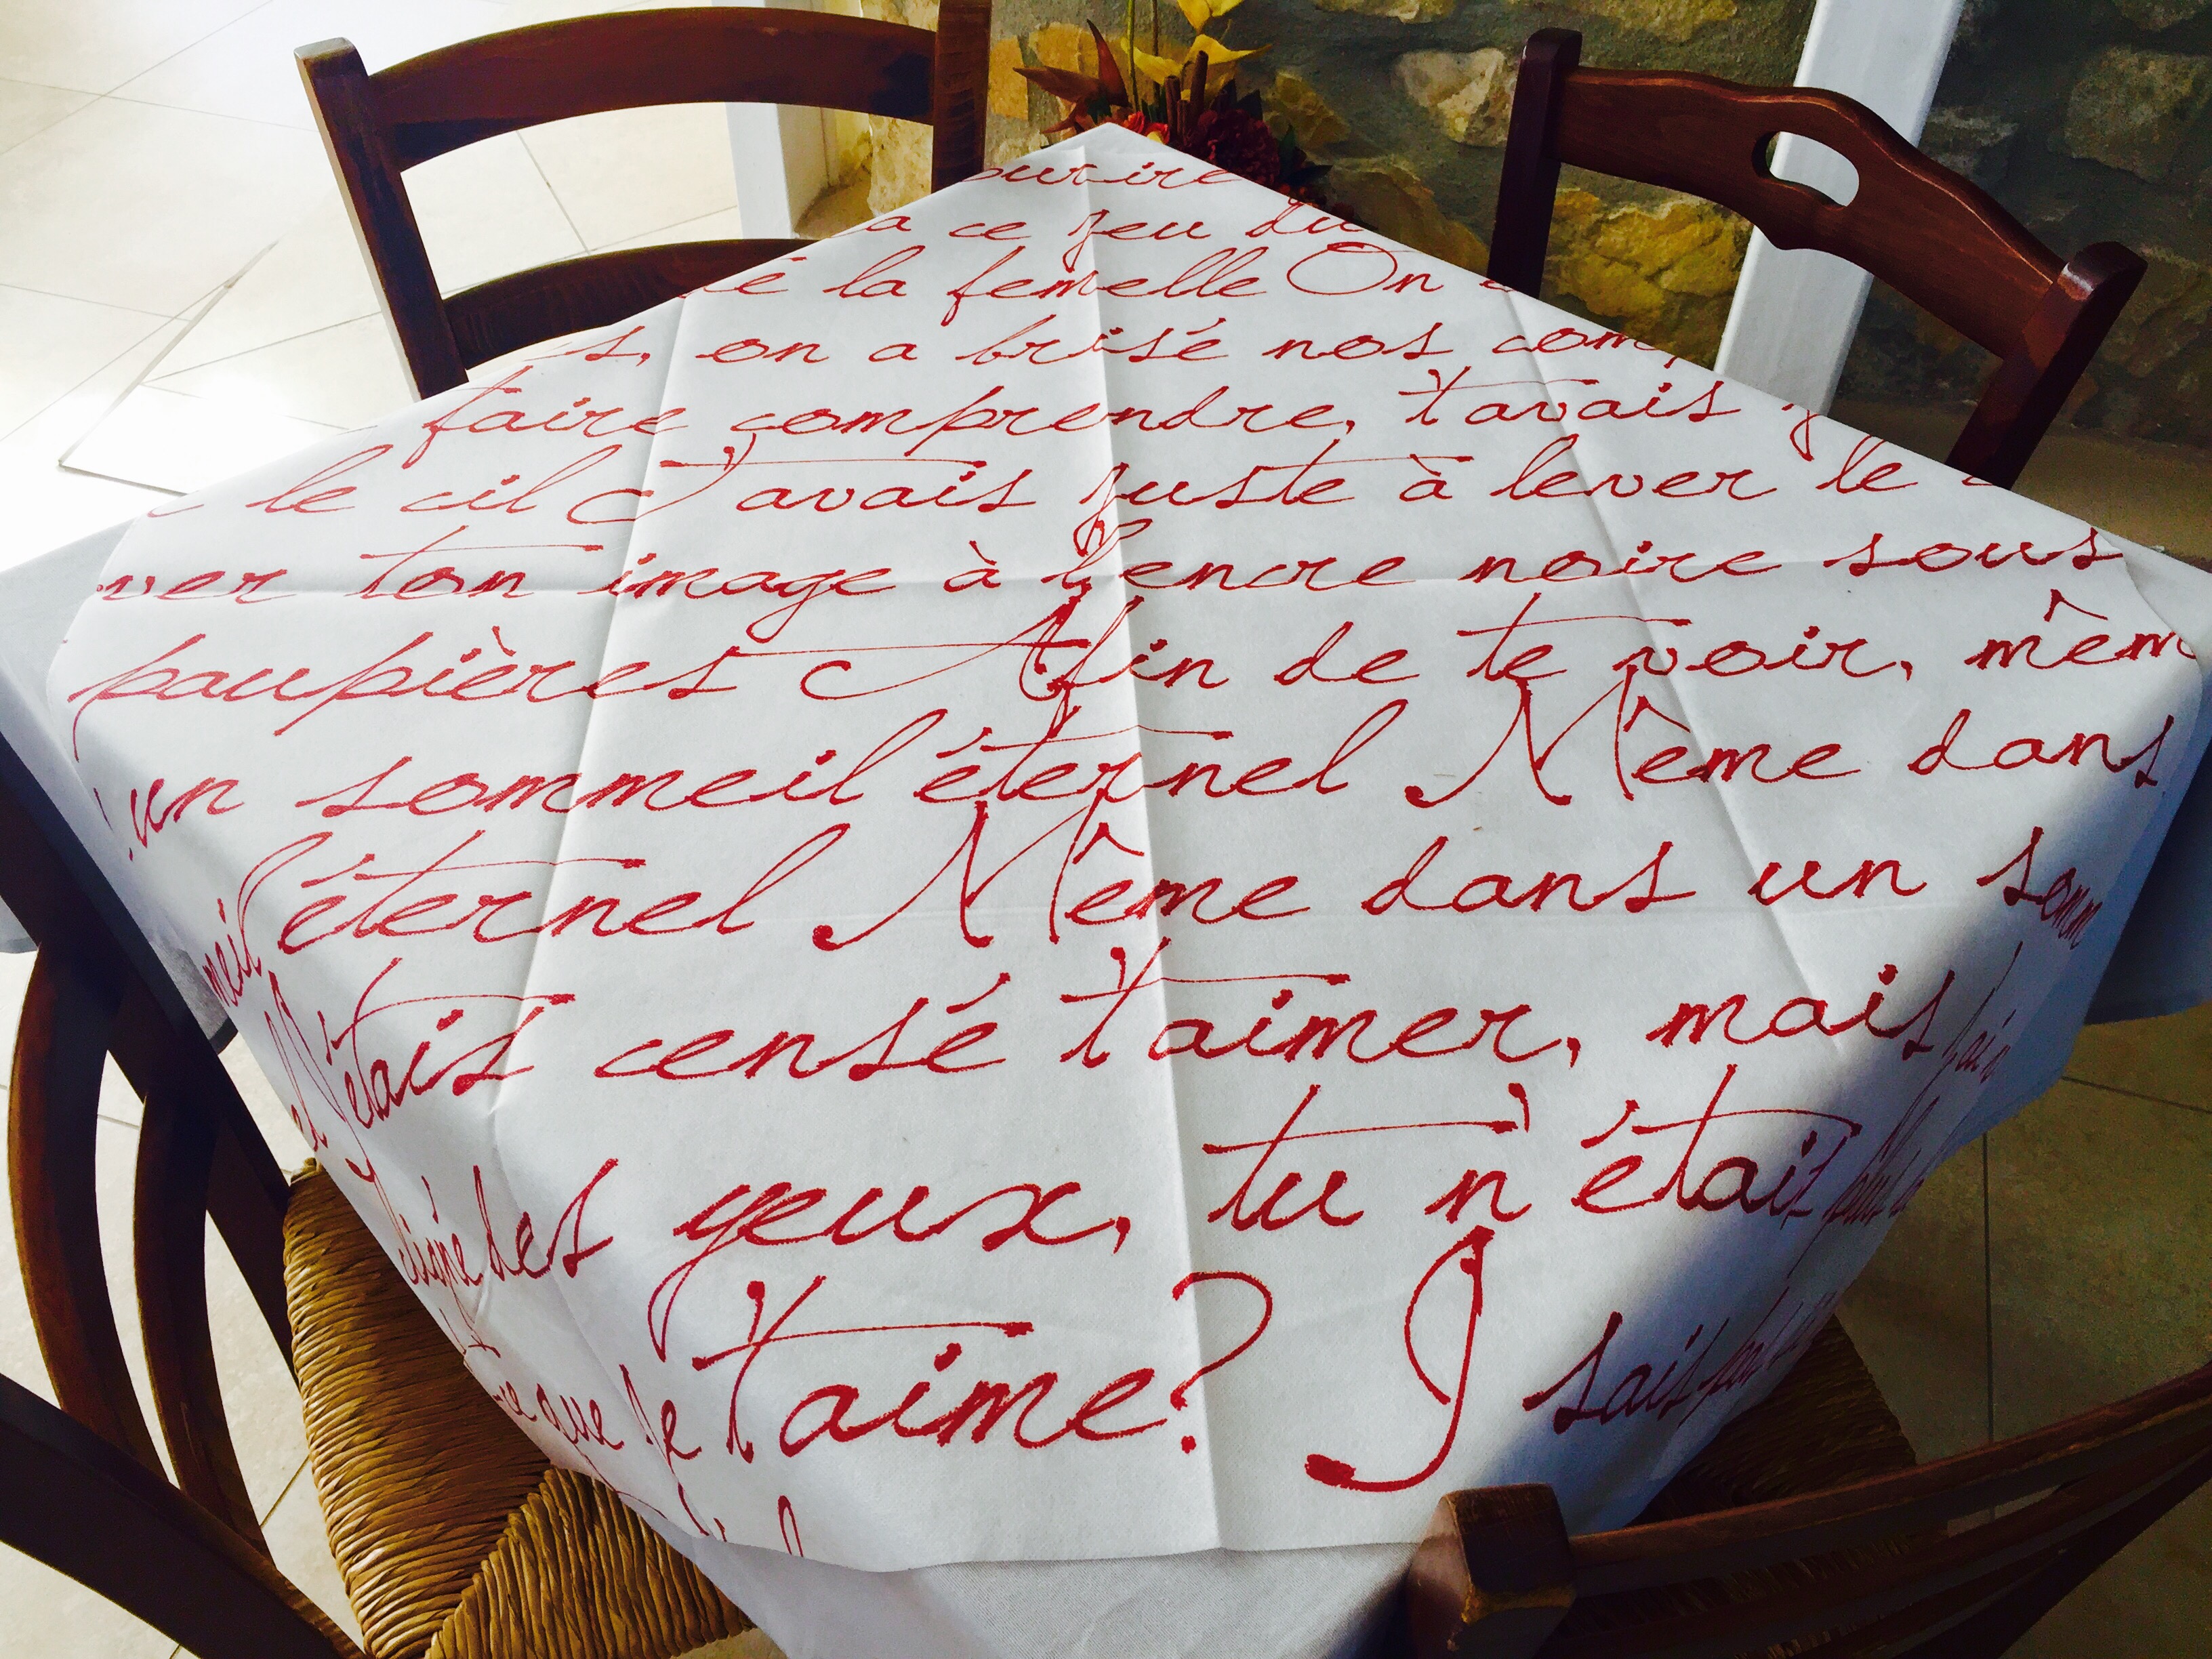 a ce jeu du
la femelle On
on a brisé nos
faire comprendre, t'avais
le cil J'avais juste à lever le
ton image à l'encre noire sous
paupières Afin de te voir,
un sommeil éternel Même dans
éternel Même dans un
J'étais censé t'aimer, mais
des yeux, tu n'étais
que je t'aime? J sais